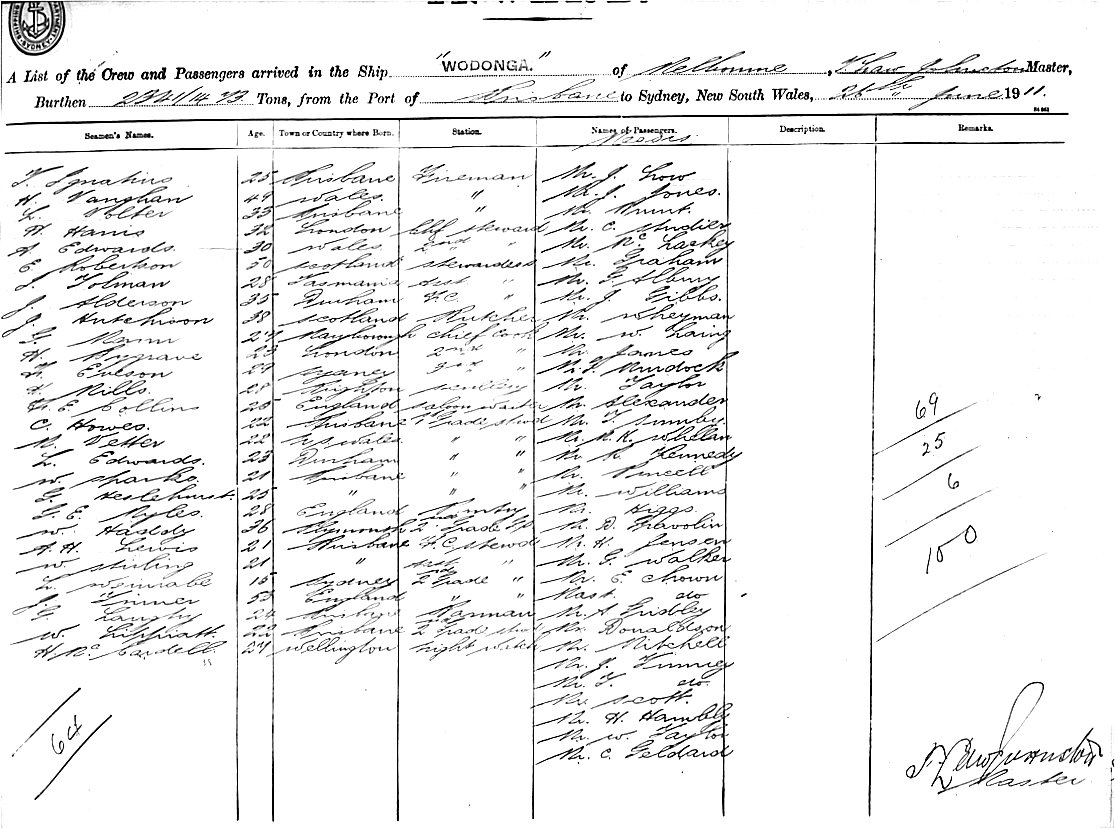 A List of the Crew and Passengers arrived in the Ship "WODONGA." of Melbourne, Shaw Johnston Master,
Burthen 2341/1473 Tons, from the Port of Brisbane to Sydney, New South Wales, June 1911.
Seamen's Names. Age. Town or Country where Born. Station. Names of Passengers. Description. Remarks.
Ignatius 25 Brisbane Fireman Mr. J. Low
H. Vaughan 49 Wales. " Mr. J. Jones.
L. Volter 33 Brisbane " Mr. Brunt.
H. Harris 32 London Chf steward Mr. C.
A. Edwards. 30 Wales 2nd " Mr. Mc Laskey
E. Robertson 50 Scotland stewardess Mr. Graham
J. Tolman 28 Tasmania " Mr. G. Albury
J. Alderson 35 Durham F.C. " Mr. J. Gibbs.
J. Hutchison 38 Scotland Butcher Mr. Wheyman
G. Mann 27 Maryborough chief cook Mr. W. Laing
H. Bygrave 23 London 2nd " Mr. James
29 Sydney 3rd " Mr. J. Murdock
H. Mills. 28 Brighton scullery Mr. Taylor
H. E. Collins 25 England saloon waiter Mr. Alexander
C. Howes. 22 Brisbane 1 Grade stwd Mr. T.
M. Vetter 22 N S Wales " " Mr. R. K. Whelan
L. Edwards. 23 Durham " " Mr. R. Kennedy
W. Sharks. 21 Brisbane " " Mr. Purcell
G. Heslehurst. 25 " " " Mr. Williams
G. E. Myles. 28 England Pantry Mr. Higgs.
W. Haddy 36 Plymouth 2 Grade Mr. D. Travolin
A. H. Lewis 21 Brisbane F.C. stewd Mr. H. Jensen
W. Stirling 21 " Mr. G. Walker
L. 15 Sydney 2 Grade " Mr. E. Chown
J. 53 England " " Mast. do
G. Langby 24 Brisbane Mr. A Gridley
W. 22 Brisbane 2 Grade Mr. Donaldson
H. Mc Cardell. 27 Wellington night watch Mr. Mitchell
Mr. J. Finney
Mr. T. do.
Mr. Scott.
Mr. H. Hambly
Mr. W. Taylor
Mr. C. Geldard
69
25
6
100
64
Master